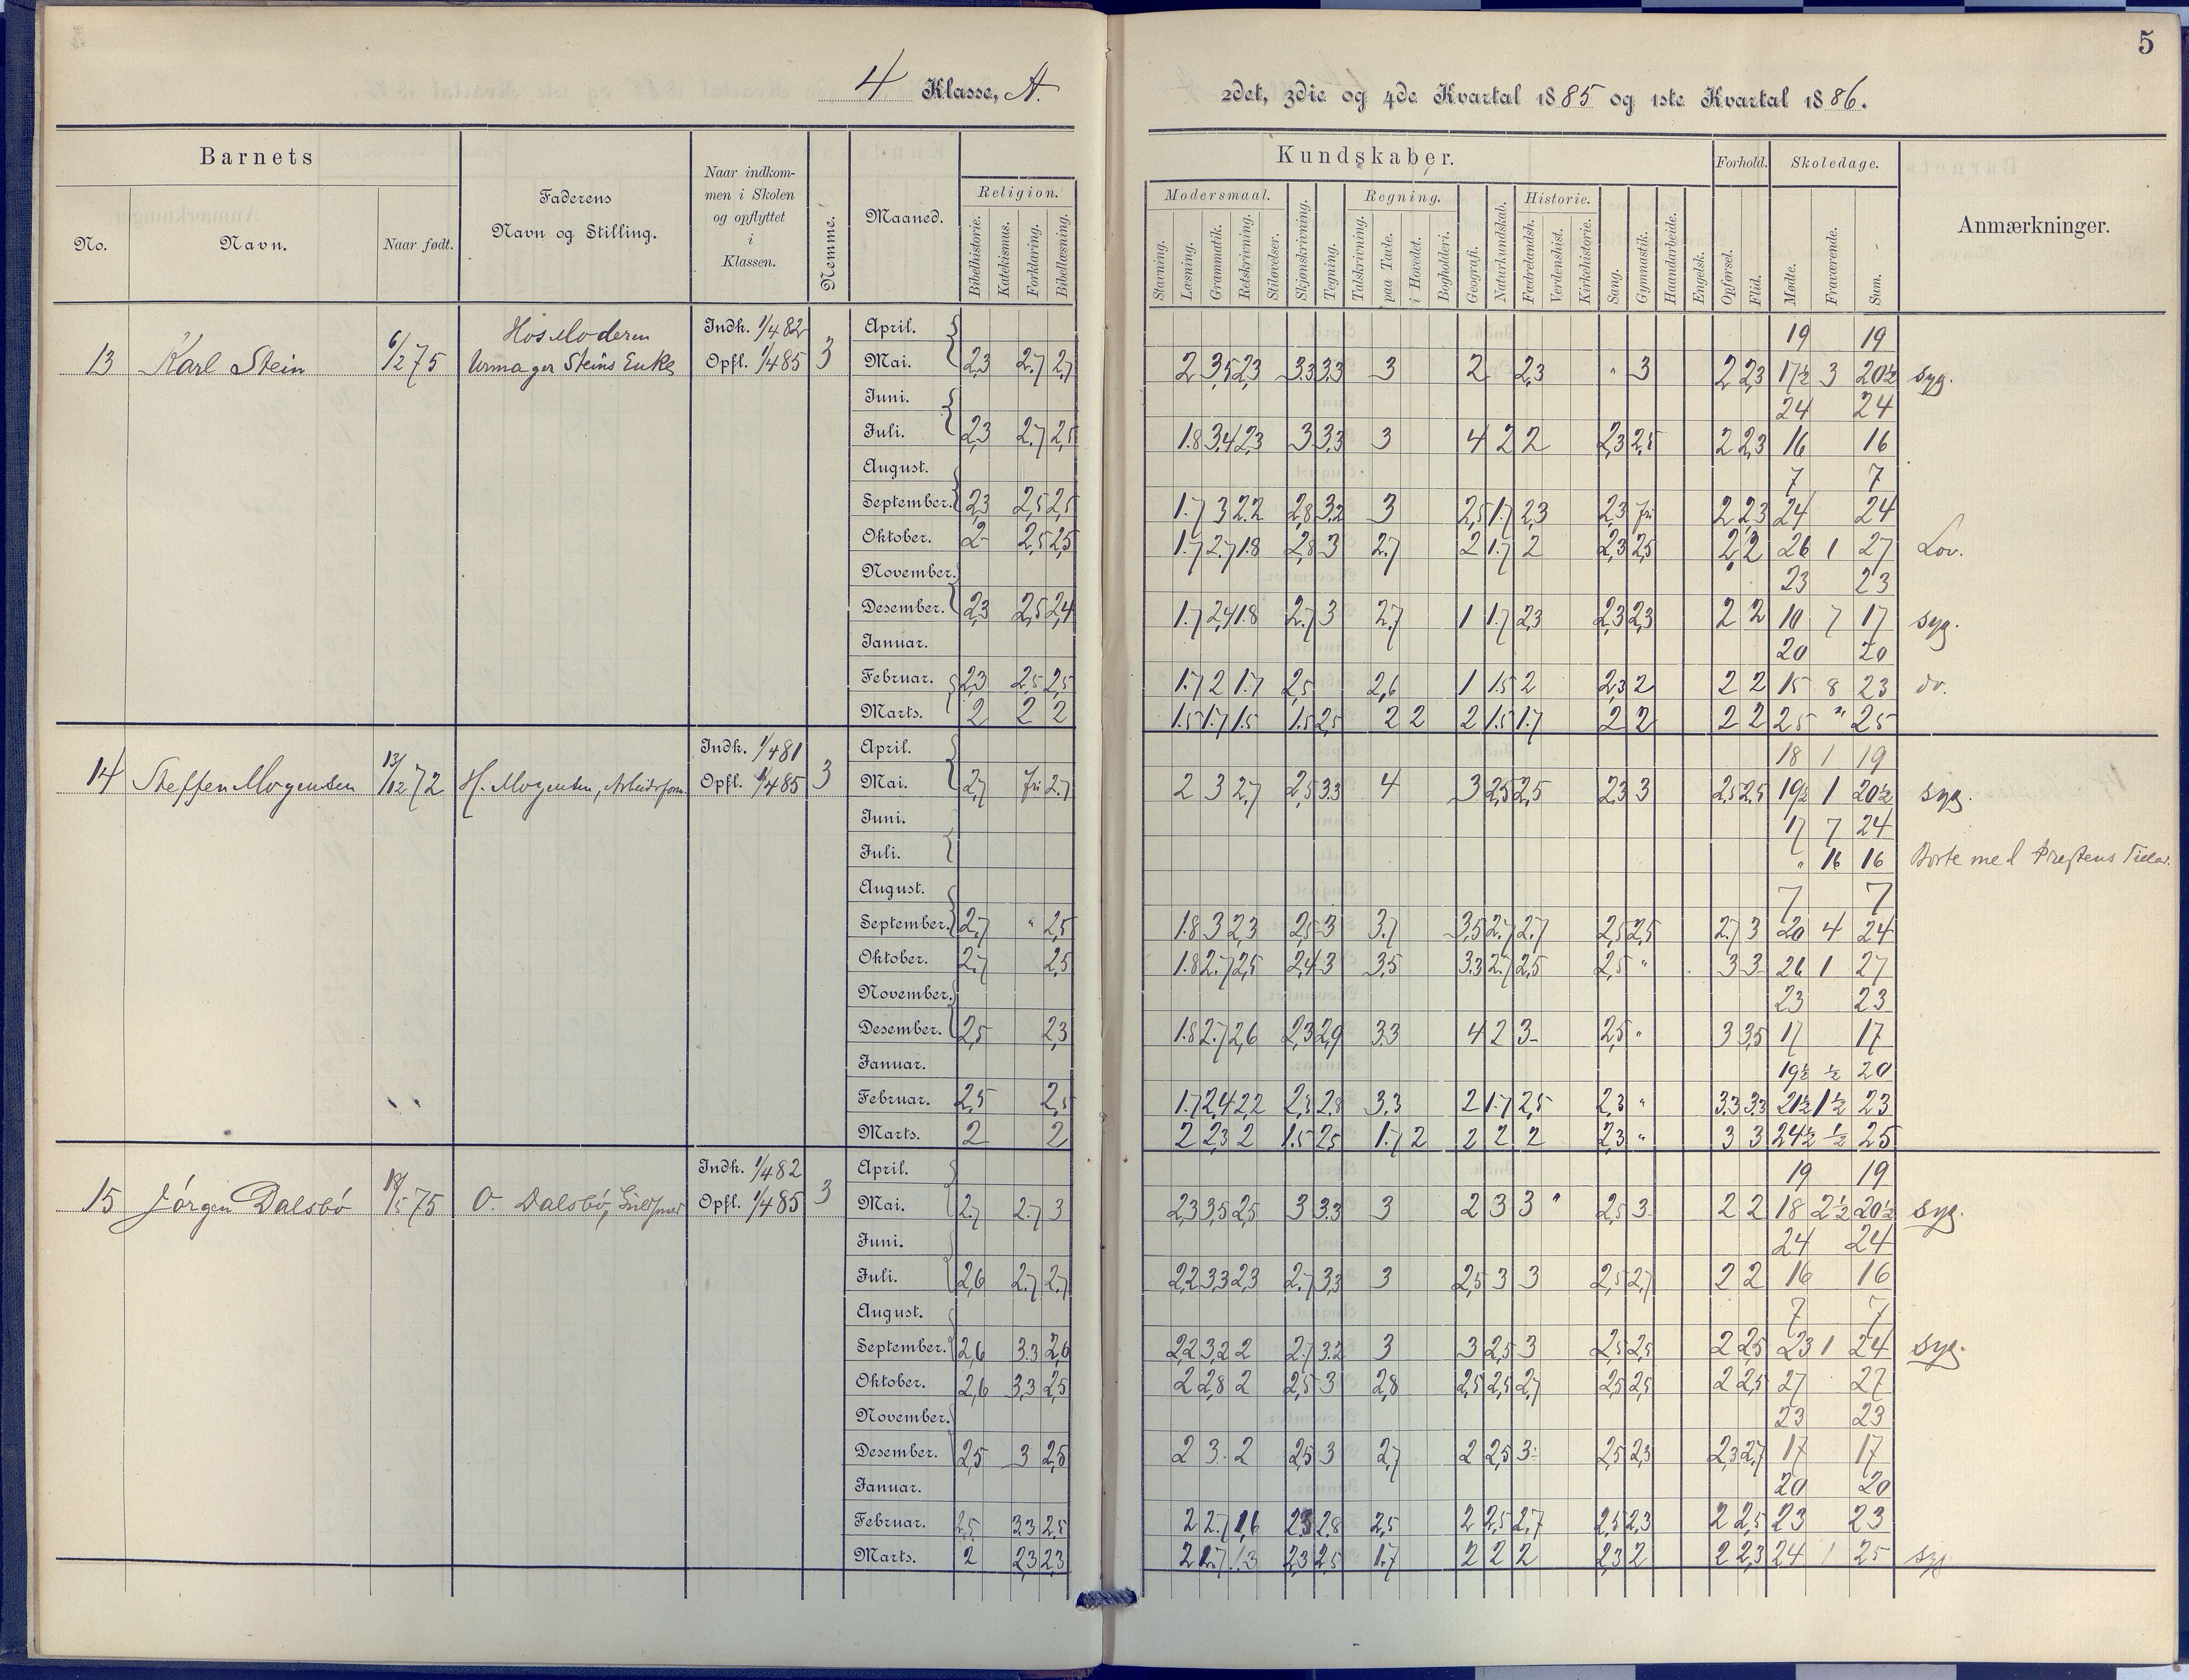 5
4 Klasse, A.
2det, 3die og 4de Kvartal 1885 og 1ste Kvartal 1886.
Barnets
No.
Navn.
Naar født.
Faderens
Navn og Stilling.
Naar indkom-
men i Skolen
og opflyttet
i
Klassen.
Nemme.
Maaned.
Religion.
Bibelhistorie.
Katekismus.
Forklaring.
Bibellæsning.
Kundskaber.
Modersmaal.
Stavning.
Læsning.
Grammatik.
Retskrivning.
Stiløvelser.
Skjønskrivning.
Tegning.
Regning.
Talskrivning.
paa Tavle.
i Hovedet.
Bogholderi.
Geografi.
Naturkundskab.
Historie.
Fædrelandsh.
Verdenshist.
Kirkehistorie.
Sang.
Gymnastik.
Haandarbeide.
Engelsk.
Forhold.
Opførsel.
Flid.
Skoledage.
Mødte.
Fraværende.
Sum.
Anmærkninger.
13 Karl Stein 6/2 75 Hos Moderen
Urmager Steins Enke
Indk. 1/4 82
Opfl. 1/4 85 3
April. 19 19
Mai. 2,3 2.7 2.7 2 3,5 2,3 3.3 3.3 3 2 2,3 " 3 2 2,3 17½ 3 20½ syg.
Juni. 24 24
Juli. 2,3 2.7 2,5 1.8 3.4 2,3 3 3,3 3 4 2 2 2,3 2,5 2 2,3 16 16
August. 7 7
September. 2,3 2,5 2,5 1.7 3 2.2 2,8 3.2 3 2,5 1.7 2,3 2,3 fri 2 2,3 24 24
Oktober. 2 2,5 2,5 1.7 2.7 1.8 2,8 3 2.7 2 1.7 2 2,3 2,5 2 2 26 1 27 Lov.
November. 23 23
Desember. 2,3 2,5 2,4 1.7 2,4 1.8 2.7 3 2.7 1 1.7 2,3 2,3 2,3 2 2 10 7 17 syg.
Januar. 20 20
Februar. 2,3 2,5 2,5 1.7 2 1.7 2,5 2,6 1 1.5 2 2,3 2 2 2 15 8 23 do.
Marts. 2 2 2 1.5 1.7 1.5 1.5 2,5 2 2 2 1.5 1.7 2 2 2 2 25 " 25
14 Steffen Mogensen 13/12 72 H. Mogensen, Arbeidsform.
Indk. 1/4 81
Opfl. 1/4 85 3
April. 18 1 19
Mai. 2,7 fri 2.7 2 3 2,7 2,5 3.3 4 3 2,5 2,5 2,3 3 2,5 2,5 19½ 1 20½ syg.
Juni. 17 7 24
Juli. " 16 16 Borte med Prestens
August. 7 7
September. 2.7 " 2,5 1.8 3 2,3 2,5 3 3.7 3,5 2.7 2.7 2,5 2,5 2.7 3 20 4 24
Oktober. 2.7 2,5 1.8 2.7 2,5 2,4 3 3,5 3.3 2.7 2,5 2,5 " 3 3 26 1 27
November. 23 23
Desember. 2,5 2,3 1.8 2.7 2,6 2,3 2,9 3.3 4 2 3 2,5 " 3 3,5 17 17
Januar. 19½ ½ 20
Februar. 2,5 2,5 1.7 2,4 2,2 2,3 2.8 3.3 2 1.7 2,5 2,3 " 3.3 3.3 21½ 1½ 23
Marts. 2 2 2 2,3 2 1.5 2,5 1.7 2 2 2 2 2,3 " 3 3 24½ ½ 25
15 Jörgen Dalsbö 18/5 75 O. Dalsbö,
Indk. 1/4 82
Opfl. 1/4 85 3
April. 19 19
Mai. 2.7 2.7 3 2,3 3,5 2,5 3 3.3 3 2 3 3 " 2,5 3 2 2 18 2½ 20½ syg.
Juni. 24 24
Juli. 2,6 2.7 2.7 2,2 3,3 2,3 2.7 3,3 3 2,5 3 3 2,5 2,7 2 2 16 16
August. 7 7
September. 2,6 3.3 2,6 2,2 3,2 2 2.7 3.2 3 3 2,5 3 2,5 2,5 2 2,5 23 1 24 syg.
Oktober. 2,6 3,3 2,5 2 2,8 2 2,5 3 2,8 2,5 2,5 2,7 2,5 2,5 2 2,5 27 27
November. 23 23
Desember. 2,5 3 2,5 2 3 2 2,5 3 2,7 2 2,5 3 2,5 2,3 2,3 2,7 17 17
Januar. 20 20
Februar. 2,5 3.3 2,5 2 2.7 1,6 2,3 2.8 2,5 2 2,5 2,7 2,5 2,3 2 2,5 23 23
Marts. 2 2,3 2,3 2 2.7 1.3 2,3 2,5 1.7 2 2 2 2,3 2 2 2,3 24 1 25 syg